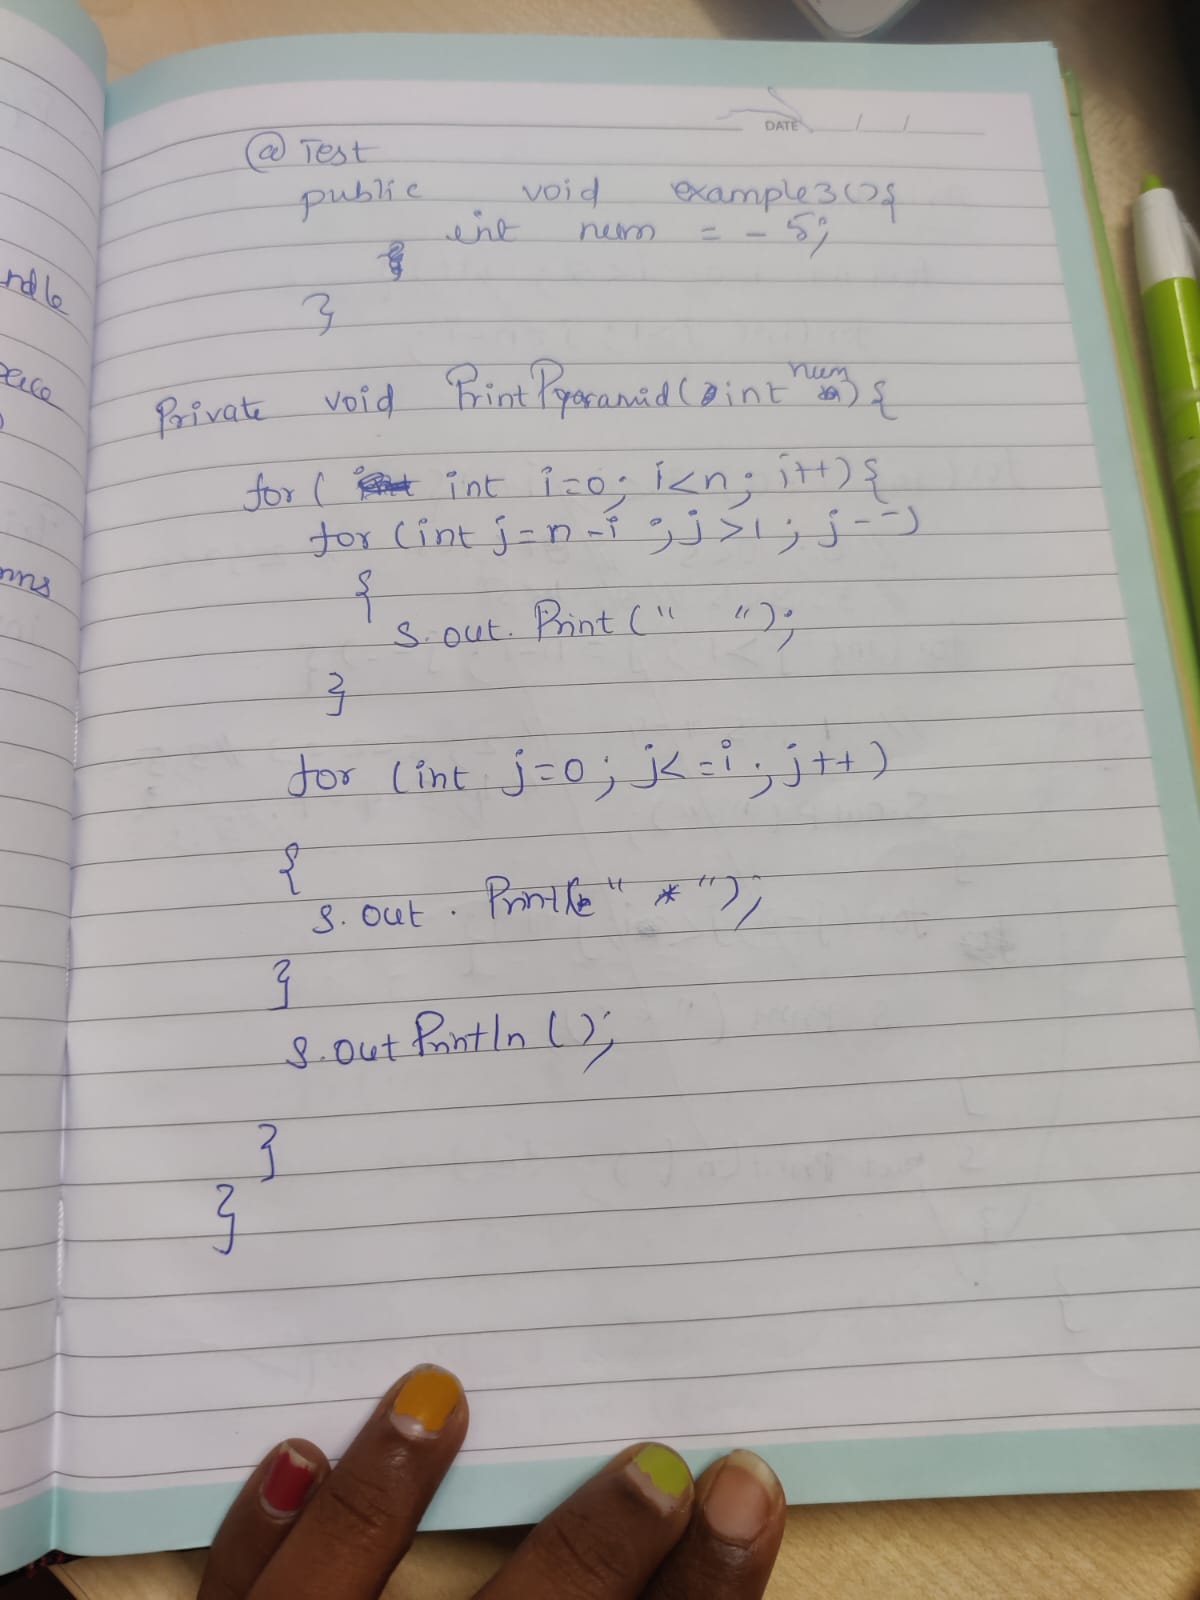 DATE / /
@Test
public void example3(){
int num = -5;
}
Private void PrintPyaramid(int num){
for( int i=0; i<n; i++){
for(int j=n-i ; j>1; j--)
{
s.out.Print(" ");
}
for (int j=0; j<=i; j++)
{
s.out.Print(" * ");
}
s.out Println ();
}
}
ndle
nms